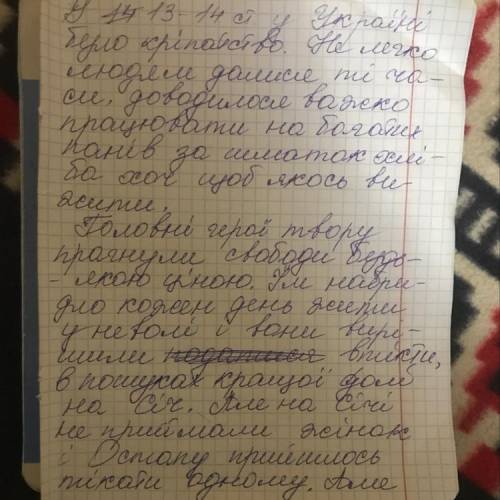 У 13-14 ст у Україні
було кріпатство. Не легко
людям далися ті ча-
си, доводилося важко
працювати на багатих
панів за шматок хлі-
ба хоч щоб якось ви-
жити.
Головні герої твору
прагнули свободи будь-
-якою ціною. Їм набри-
дло кожен день жити
у неволі і вони вирі-
шили податися втікти,
в пошуках кращої долі
на Січ. Але на Січі
не приймали жінок
і Остапу прийшлось
тікати одному. Але